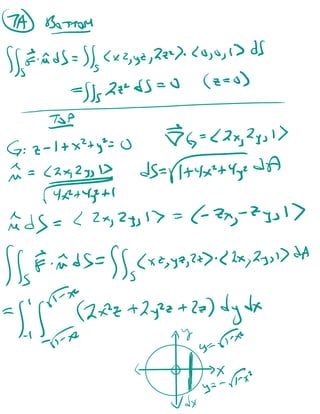 7A) BOTTOM
∬_S F⃗·n̂ dS = ∬_S <xz, yz, 2z²>·<0,0,1> dS
= ∬_S 2z² dS = 0 (z=0)
TOP
G: z-1+x²+y²=0 ∇⃗G = <2x, 2y, 1>
n̂ = <2x, 2y, 1> / √(4x²+4y²+1) dS = √(1+4x²+4y²) dA
n̂ dS = <2x, 2y, 1> = (-zx, -zy, 1)
∬_S F⃗·n̂ dS = ∬_S <xz, yz, 2z>·<2x, 2y, 1> dA
= ∫_{-1}^{1} ∫_{-√(1-x²)}^{√(1-x²)} (2x²z + 2y²z + 2z) dy dx
y
y=√(1-x²)
x
y=-√(1-x²)
dx